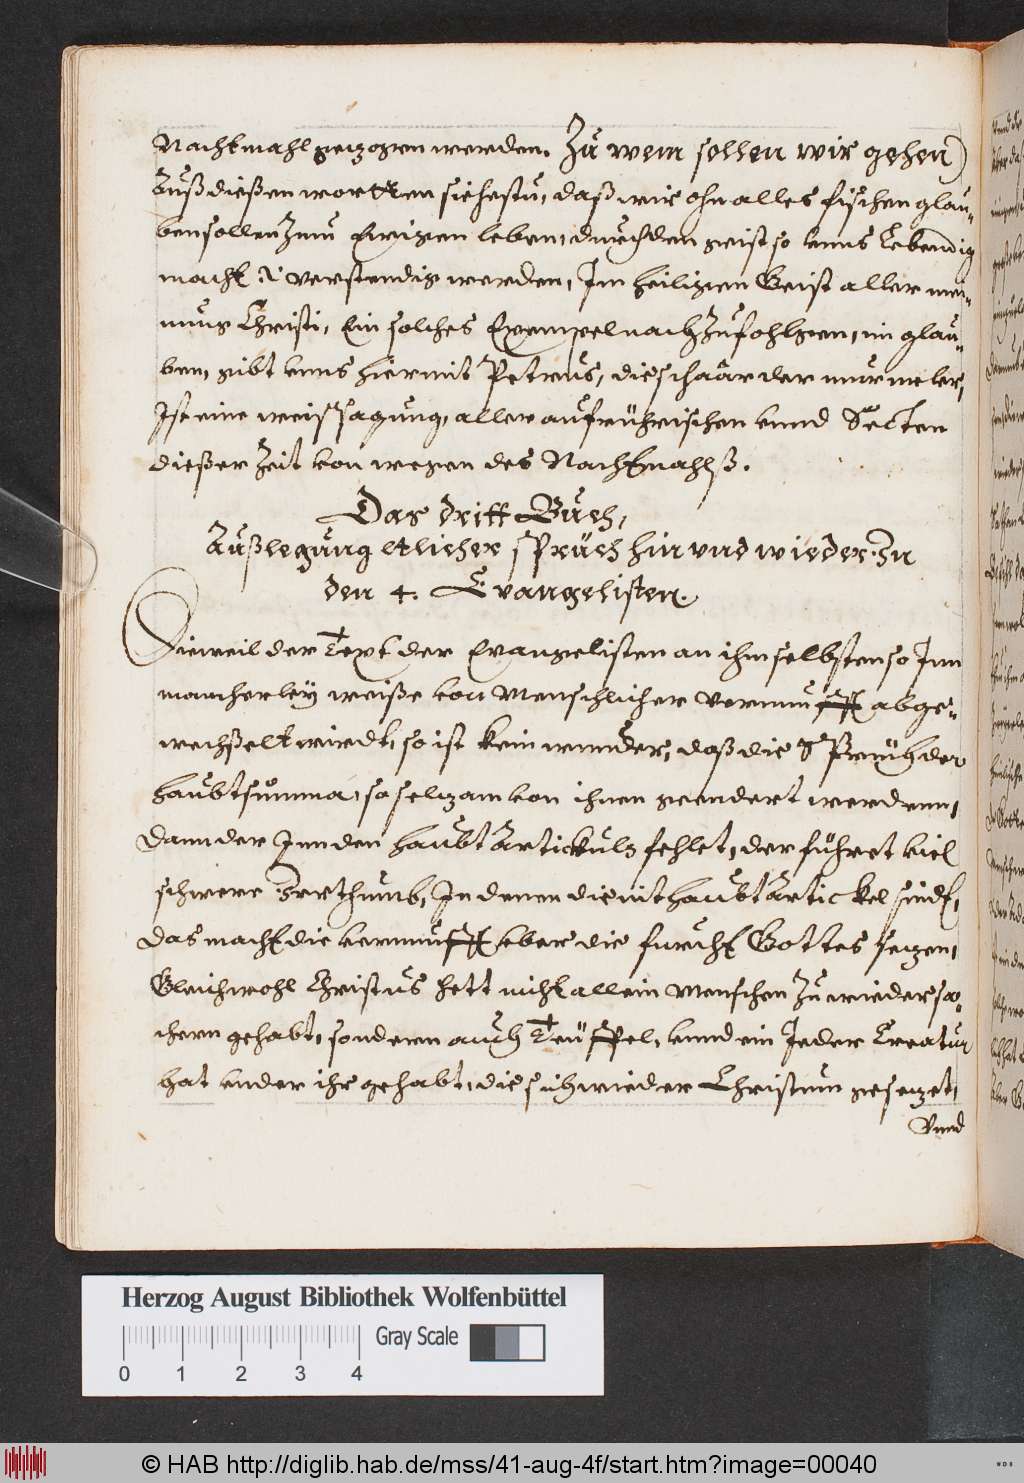 Nachtmahl gezogen werden. Zů wem sollen wir gehen)
Außdießen wortten siehestu, daß wir ohn alles fischen glau-
ben sollen Zum Ewigen leben, durch den geist so vnns Lebendig
macht verstendig werden, Im heiligen Geist aller mei-
nung Christi, Ein solches Exempel nach Zufohlgen, im glau-
ben, gibt vnns hiermit Petrus, die schaar der murmeler,
Ist eine weissagung, aller aufrührischen vnnd Secten
dießer Zeit von wegen des Nachtmahlß.
Das dritt Buch,
Außlegung etlicher sprüch hin vnd wieder In
den 4. Evangelisten.
Dieweil der Text der Evangelisten an ihm selbsten so Inn
mancherley weiße von Menschlicher vernunfft abge-
wechßelt wirdt, so ist kein wunder, daß die Sprüch der
haubtsumma, so selzam von ihnen geendert werdenn,
Dann der Inn den haubt Artickuln fehlet, der führet viel
schwere Irrthumb, In denen die nit haubt Artickel sindt,
das macht die vernunfft vber die furcht Gottes sezen,
Gleichwohl Christus hett nicht allein Menschen Zu wiedersa-
chern gehabt, sondern auch Teüffel, vnnd ein Jeder Creatur
hat vnder ihr gehabt, die sich wieder Christum gesezet,
Vnnd
Herzog August Bibliothek Wolfenbüttel
Gray Scale
0 1 2 3 4
© HAB http://diglib.hab.de/mss/41-aug-4f/start.htm?image=00040